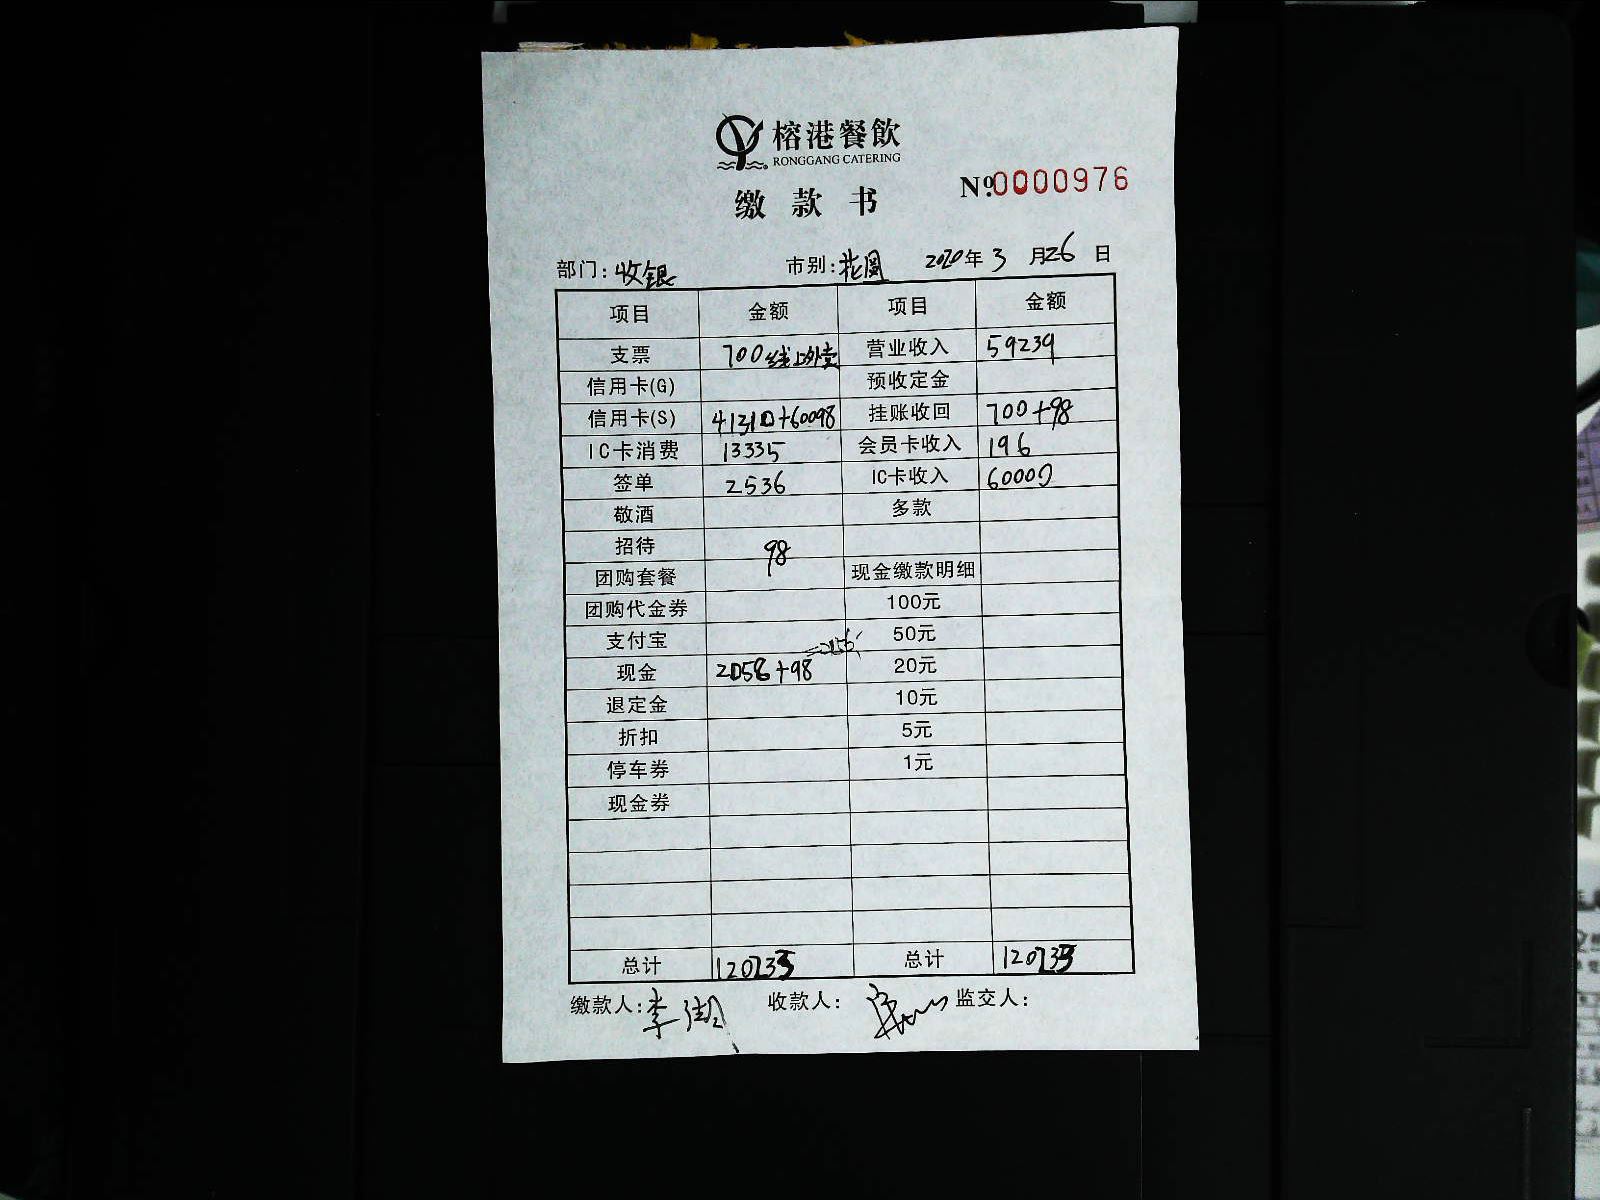 榕港餐飲
RONGGANG CATERING
缴款书
№0000976
部门:收银 市别:花园 2020年3月26日
项目 金额 项目 金额
支票 700线上外卖 营业收入 59239
信用卡(G) 预收定金
信用卡(S) 41310+60098 挂账收回 700+98
IC卡消费 13335 会员卡收入 196
签单 2536 IC卡收入 60000
敬酒 多款
招待 98
团购套餐 现金缴款明细
团购代金券 100元
支付宝 50元
=2156
现金 2058+98 20元
退定金 10元
折扣 5元
停车券 1元
现金券
总计 120233 总计 120233
缴款人:李 收款人: 监交人: